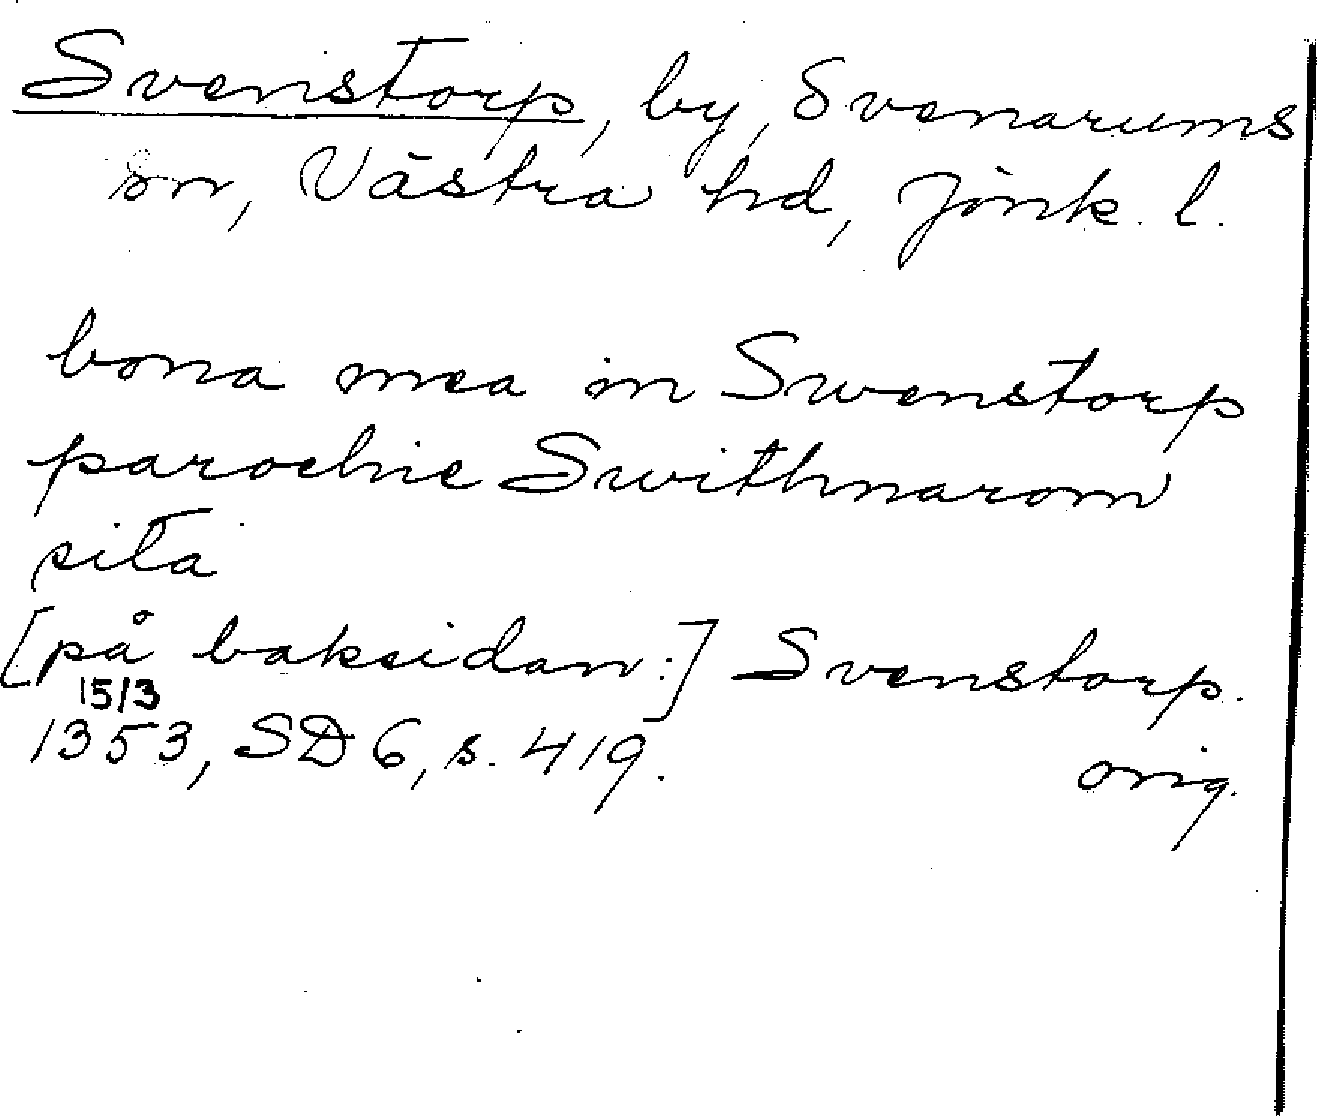 Svenstorp, by, Svenarums
sn, Västra hd, Jönk. l.
bona mea in Swenstorp
parochie Swithnarom
sita
[på baksidan:] Svenstorp.
15/3
1353, SD 6, s. 419.
orig.